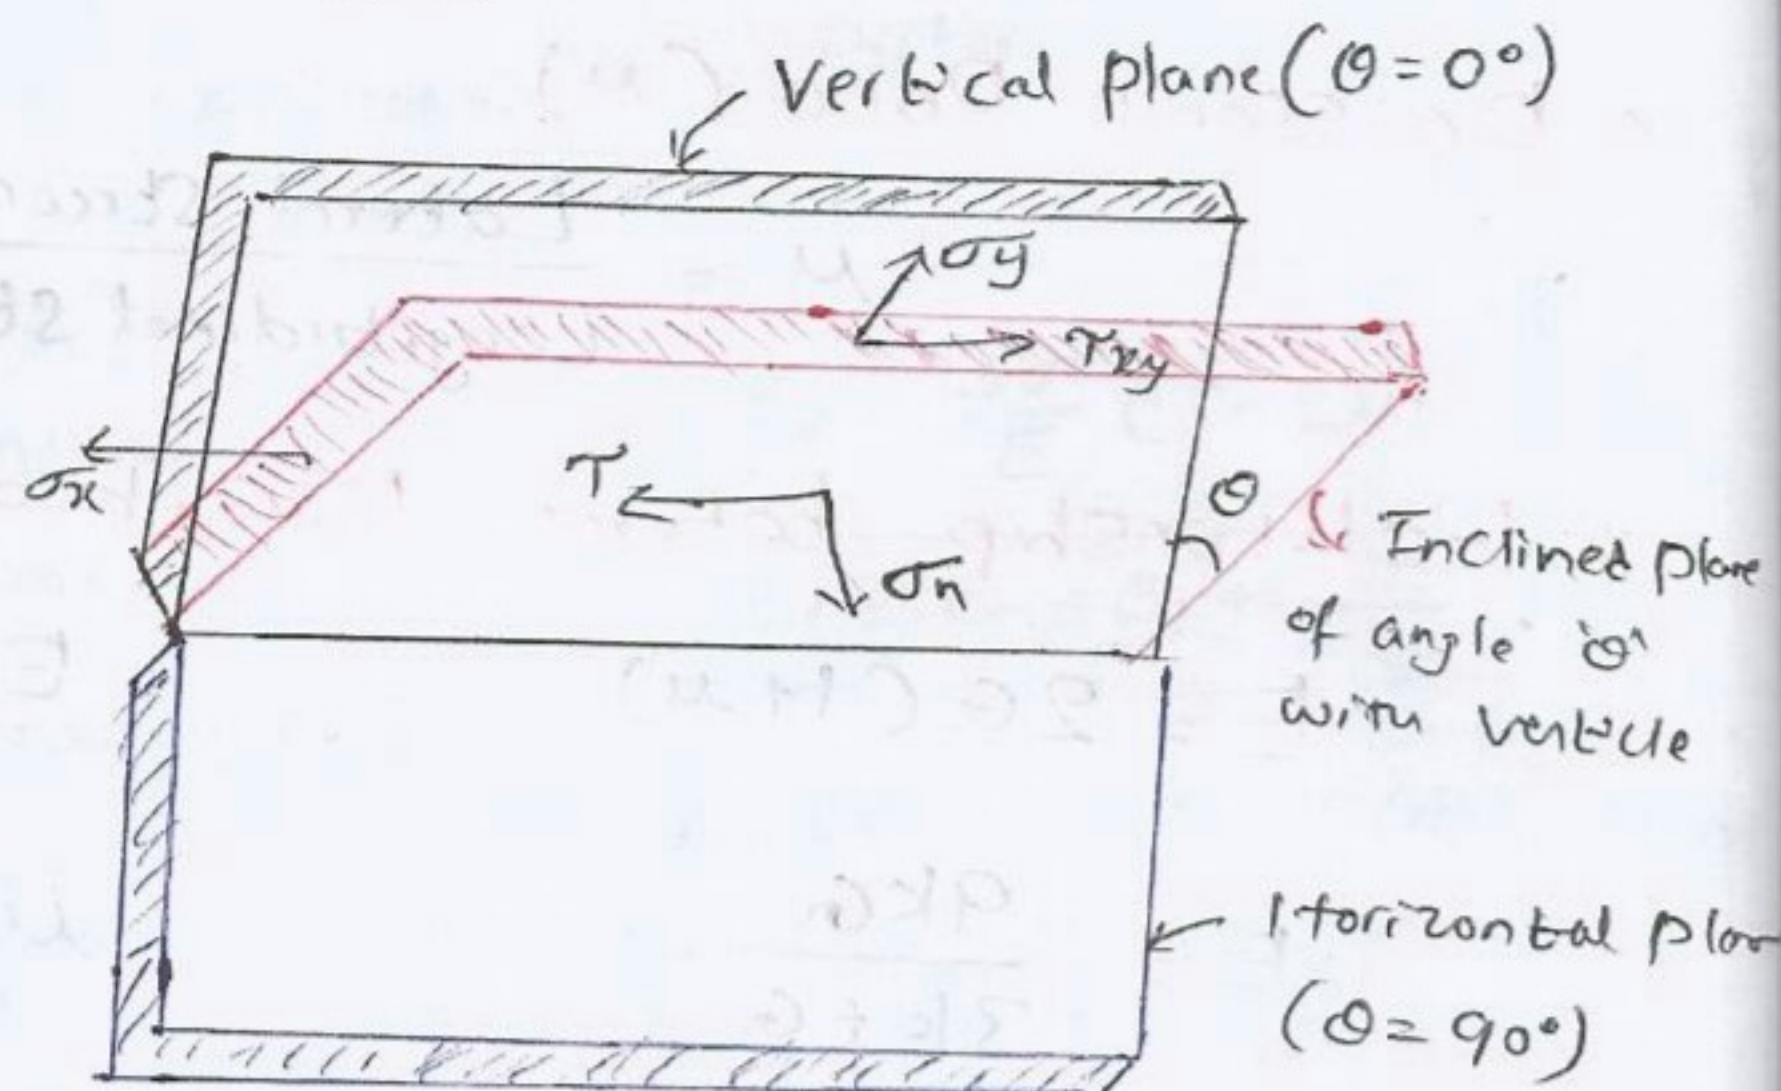 Vertical plane (θ = 0°)
σy
τxy
σx
τ
θ
σn
Inclined plane
of angle 'θ'
with verticle
Horizontal plan
(θ = 90°)